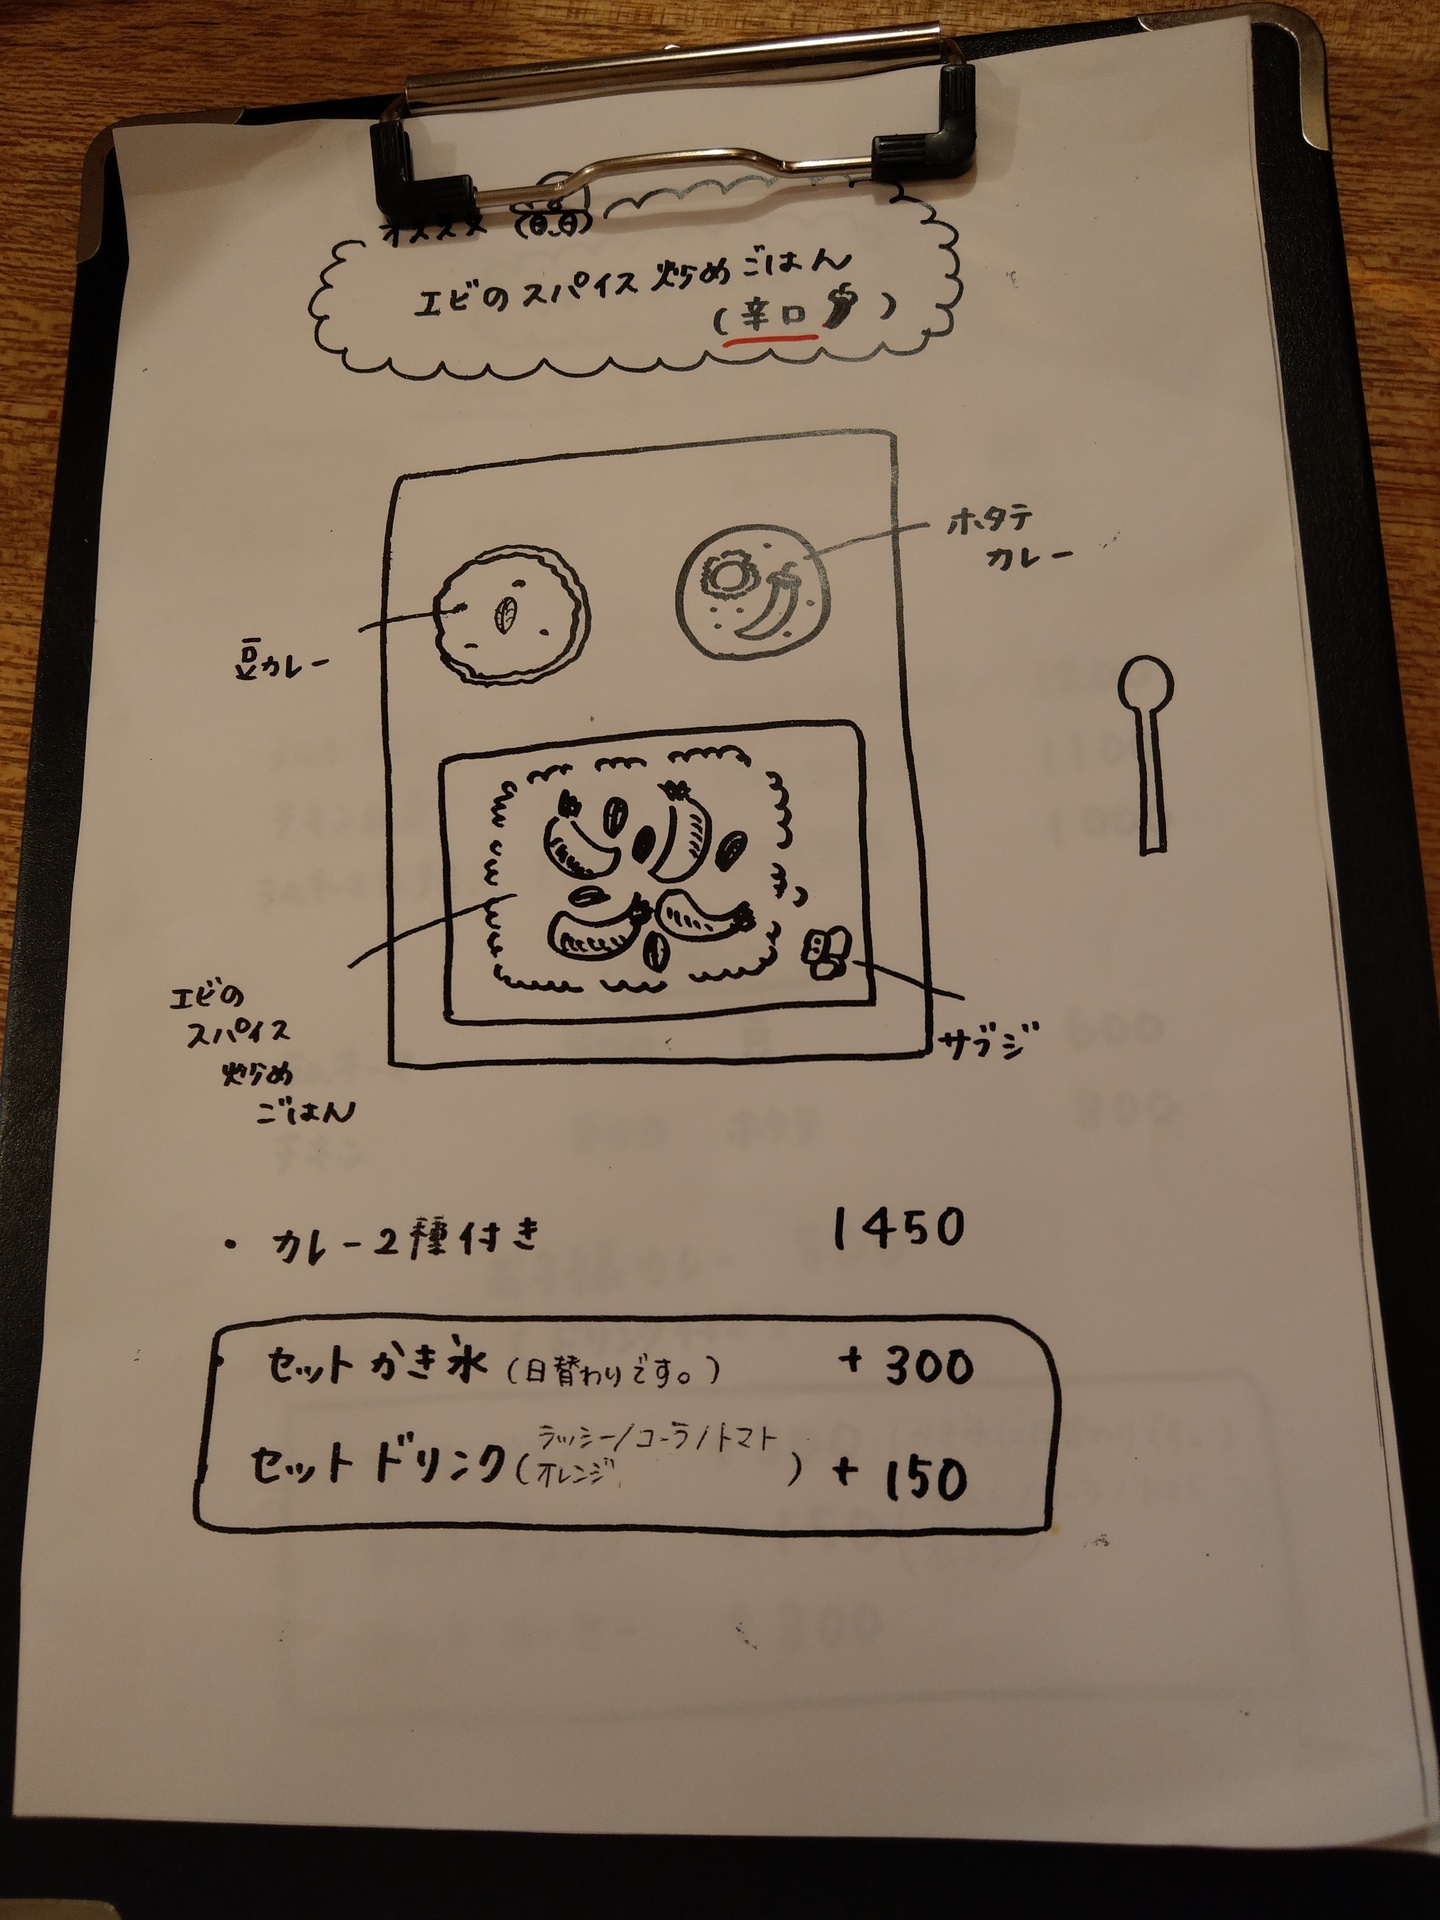 オススメ
エビのスパイス炒めごはん
(辛口)
ホタテ
カレー
豆カレー
エビの
スパイス
炒め
ごはん
サブジ
・カレー2種付き 1450
セットかき氷(日替わりです。) +300
セットドリンク(ラッシー/コーラ/トマト
オレンジ) +150